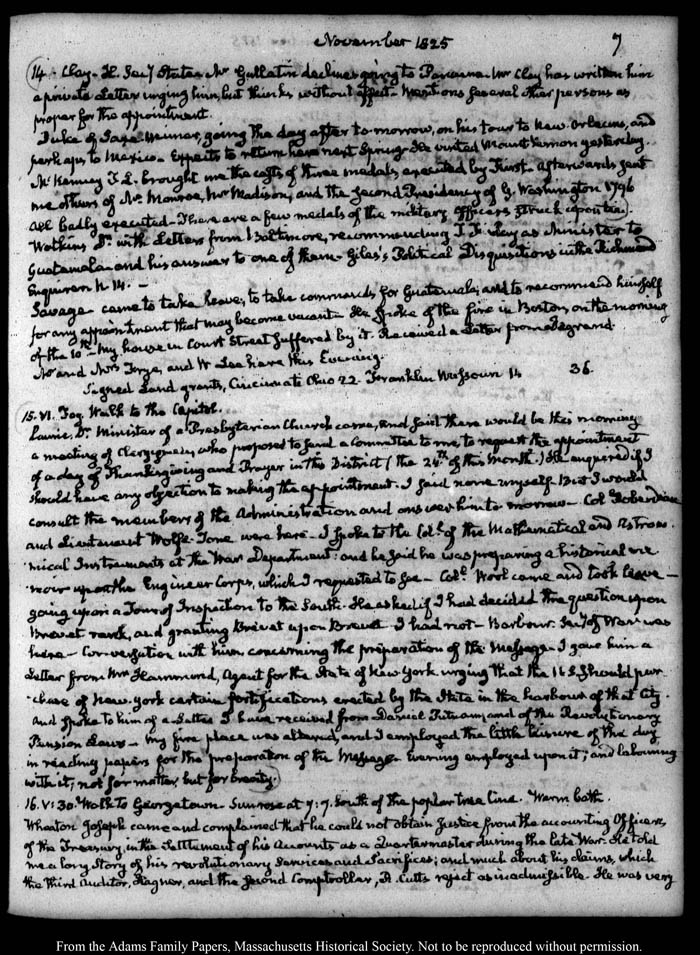 November 1825
7
14. Clay. H. Secy State. Mr Gallatin declines going to Panama. Mr Clay has written him
a private Letter urging him, but thinks without effect. Mentions several other persons as
proper for the appointment.
Duke of Saxe-Weimar, going the day after to-morrow, on his tour to New-Orleans, and
perhaps to Mexico. Expects to return here next Spring. He visited Mount Vernon yesterday.
McKenney T. L. brought me the casts of three medals executed by Fürst. Afterwards sent
me others of Mr Monroe, Mr Madison, and the second Presidency of G. Washington 1796
all badly executed. There are a few medals of the military officers struck upon tin.
Watkins Dr. with Letters from Baltimore, recommending as Minister to
Guatemala and his answer to one of them. Giles's Political Disquisitions in the Richmond
Enquirer N. 14. —
Savage came to take leave; to take commands for Guatemala; and to recommend himself
for any appointment that may become vacant. He spoke of the fire in Boston, on the morning
of the 10th. My house in Court Street suffered by it. Received a Letter from Degrand.
Mr and Mrs Frye, and W Lee here this Evening.
Signed Land grants, Cincinnati Ohio 22. Franklin Missouri 14 36.
15. VI. Fog. Walk to the Capitol.
Laurie, Dr. Minister of a Presbyterian Church came, and said there would be this morning
a meeting of Clergymen, who proposed to send a Committee to me to request the appointment
of a day of Thanksgiving and Prayer in this District (the 24th of this month.) He enquired if I
should have any objection to making the appointment. I said none myself But I would
consult the members of the Administration and answer him to-morrow. Coll. Roberdeau
and Lieutenant Wolfe-Tone were here. I spoke to the Coll. of the Mathematical and Astrono-
mical Instruments at the War Department: and he said he was preparing a historical me-
moir upon the Engineer Corps, which I requested to see. Coll. Wool came and took leave —
going upon a Tour of Inspection to the South. He asked if I had decided the question upon
Brevet rank, and granting Brevet upon Brevet. I had not. Barbour. Secy of War was
here. Conversation with him concerning the preparation of the Message. I gave him a
Letter from Mr Hammond, Agent for the State of New York urging that the U.S. should pur-
chase of New-York certain fortifications erected by the State in the harbour of that City.
And spoke to him of a Letter I have received from Daniel Putnam, and of the Revolutionary
Pension Laws. My fire place was altered, and I employed the little leisure of the day
in reading papers for the preparation of the Message. Evening employed upon it; and labouring
with it; not for matter, but for brevity.
16. V:30. Walk to Georgetown. Sunrose at 7:7. South of the poplar tree line. Warm bath.
Wheaton Joseph came and complained that he could not obtain Justice from the accounting Officers,
of the Treasury, in the Settlement of his Accounts as a Quartermaster during the late War. He told
me a long Story of his revolutionary services and sacrifices; and much about his claims, which
the third Auditor, Hagner, and the second Comptroller, R. Cutts reject as inadmissible. He was very
From the Adams Family Papers, Massachusetts Historical Society. Not to be reproduced without permission.